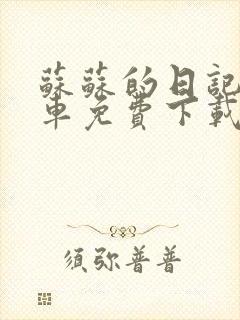 蘇蘇的日記
車免費下載
須弥普普